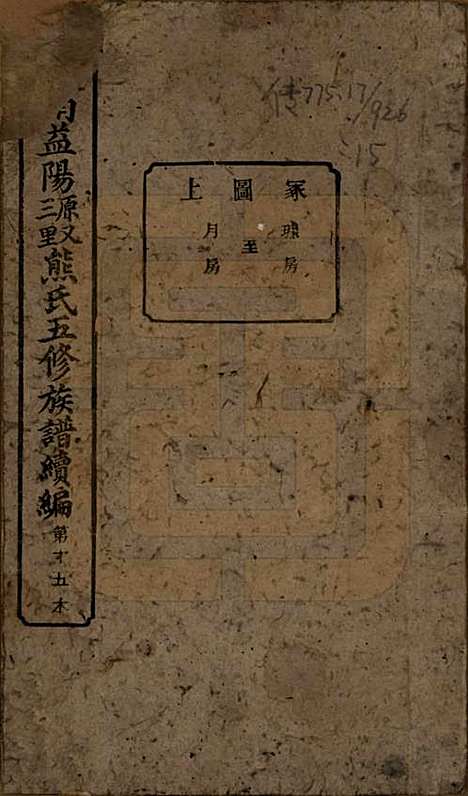 益陽三里源又熊氏五修族譜續編 第十五本
冢圖上
房
至
月房
傳775.17
/926
:15